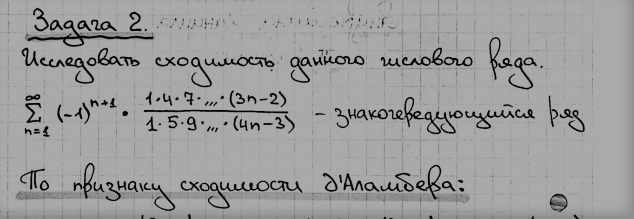 Задача 2.
Исследовать сходимость данного числового ряда.
∞ ∑ n=1 (-1)^(n+1) · (1·4·7·...·(3n-2))/(1·5·9·...·(4n-3)) - знакочередующийся ряд
По признаку сходимости д'Аламбера: